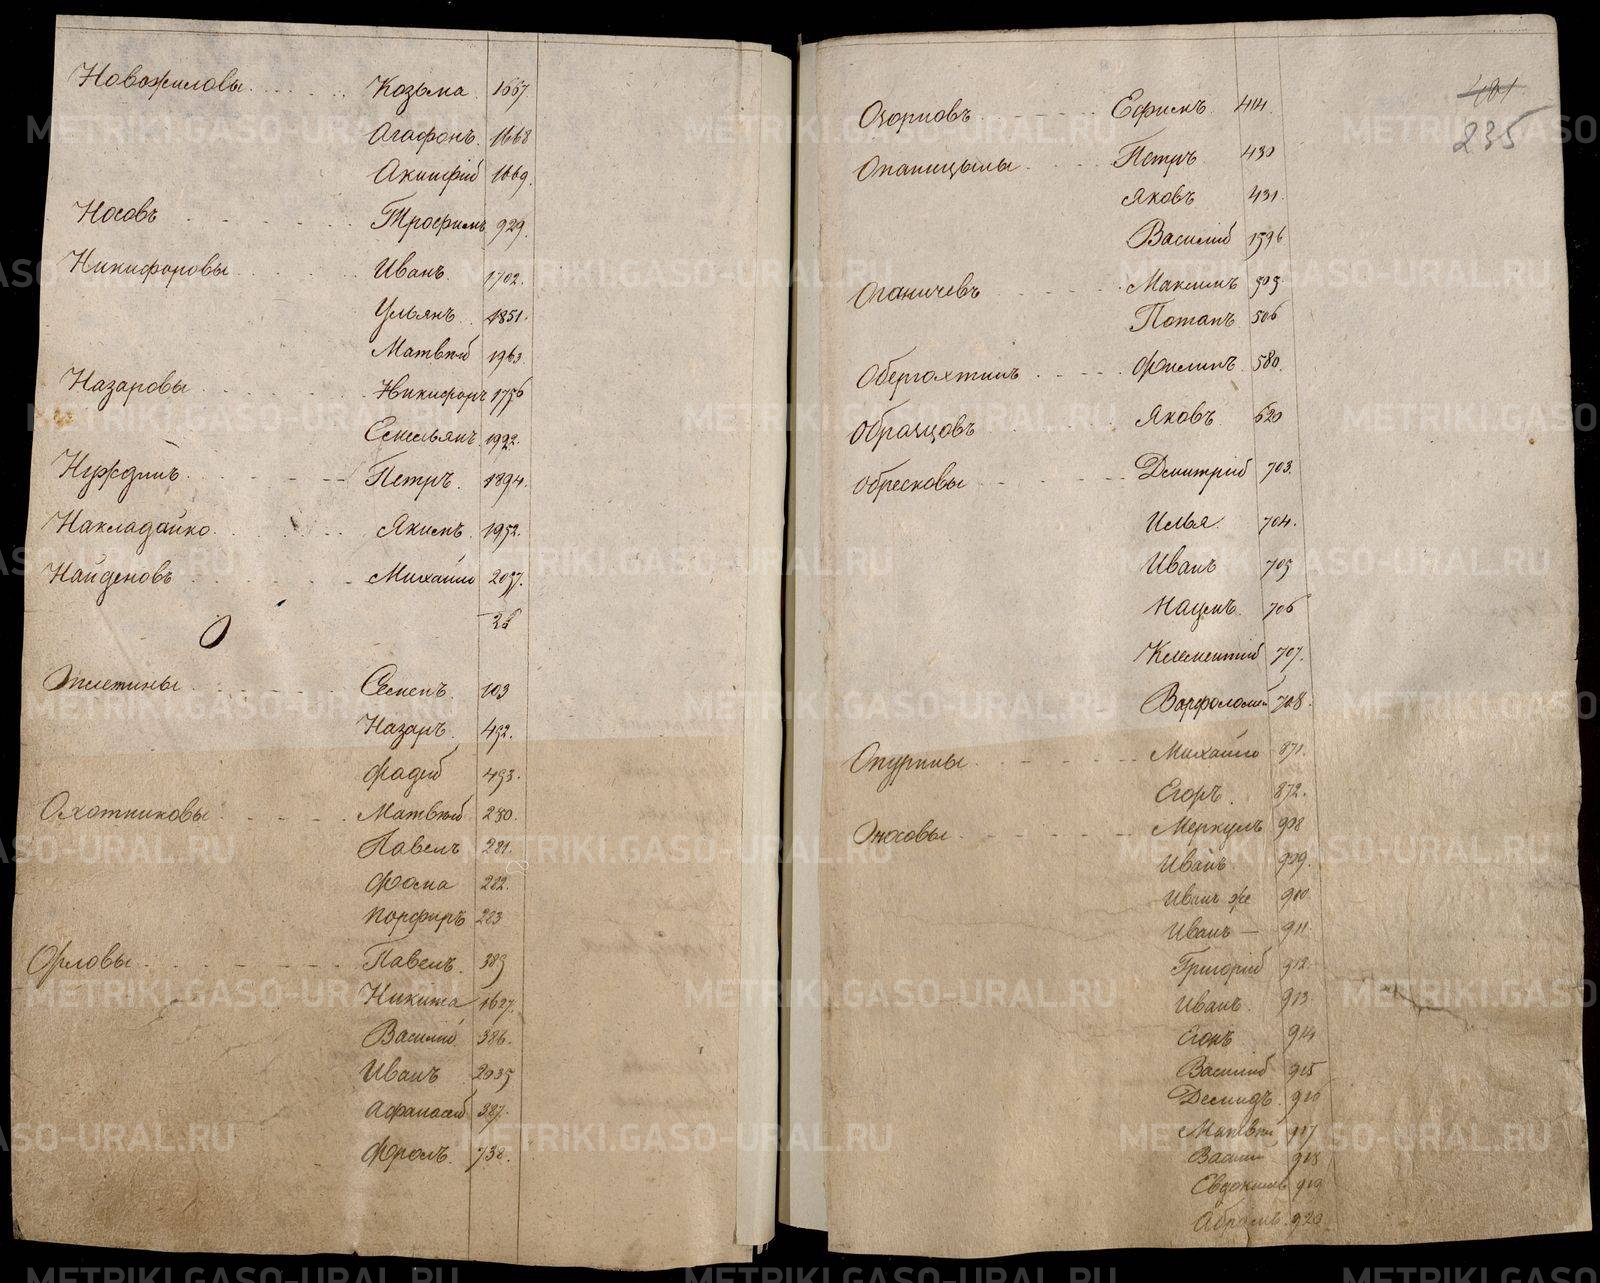 Новожиловы Козьма 1667
Агафонъ 1668
Акинфій 1669.
Носовъ Трофимъ 929.
Никифоровы Иванъ 1702.
Ульянъ 1851.
Матвѣй 1963.
Назаровы Никифоръ 1756
Емельянъ 1992.
Нуждинъ Петръ 1894.
Накладайко Якимъ 1952.
Найденовъ Михайло 2037.
26
О
Семенъ 103
Назаръ 492.
Фадей 493.
Охотниковы Матвѣй 280.
Павелъ 281.
Фома 282.
Порфиръ 283
Орловы Павелъ 385
Никита 1627.
Василій 386.
Иванъ 2035
Афанасей 387.
Фролъ 738.
401
235
Ефимъ 414.
Опаницыны Петръ 430
Яковъ 431.
Василій 1596
Оганичевъ Максимъ 505.
Потапъ 506
Филипъ 580.
Образцовъ Яковъ 620
Обресковы Дмитрій 703.
Илья 704.
Иванъ 705
Наумъ 706
Клементій 707.
Варфоломей 708.
Опурины Михайло 871.
Егоръ 872.
Меркулъ 908
Иванъ 909.
Иванъ же 910
Иванъ — 911.
Григорій 912
Иванъ 913
914
Василій 915
Демидъ 916
Матвѣй 917
Васили 918
Евдокимъ 919
Абрамъ 920
METRIKI.GASO-URAL.RU